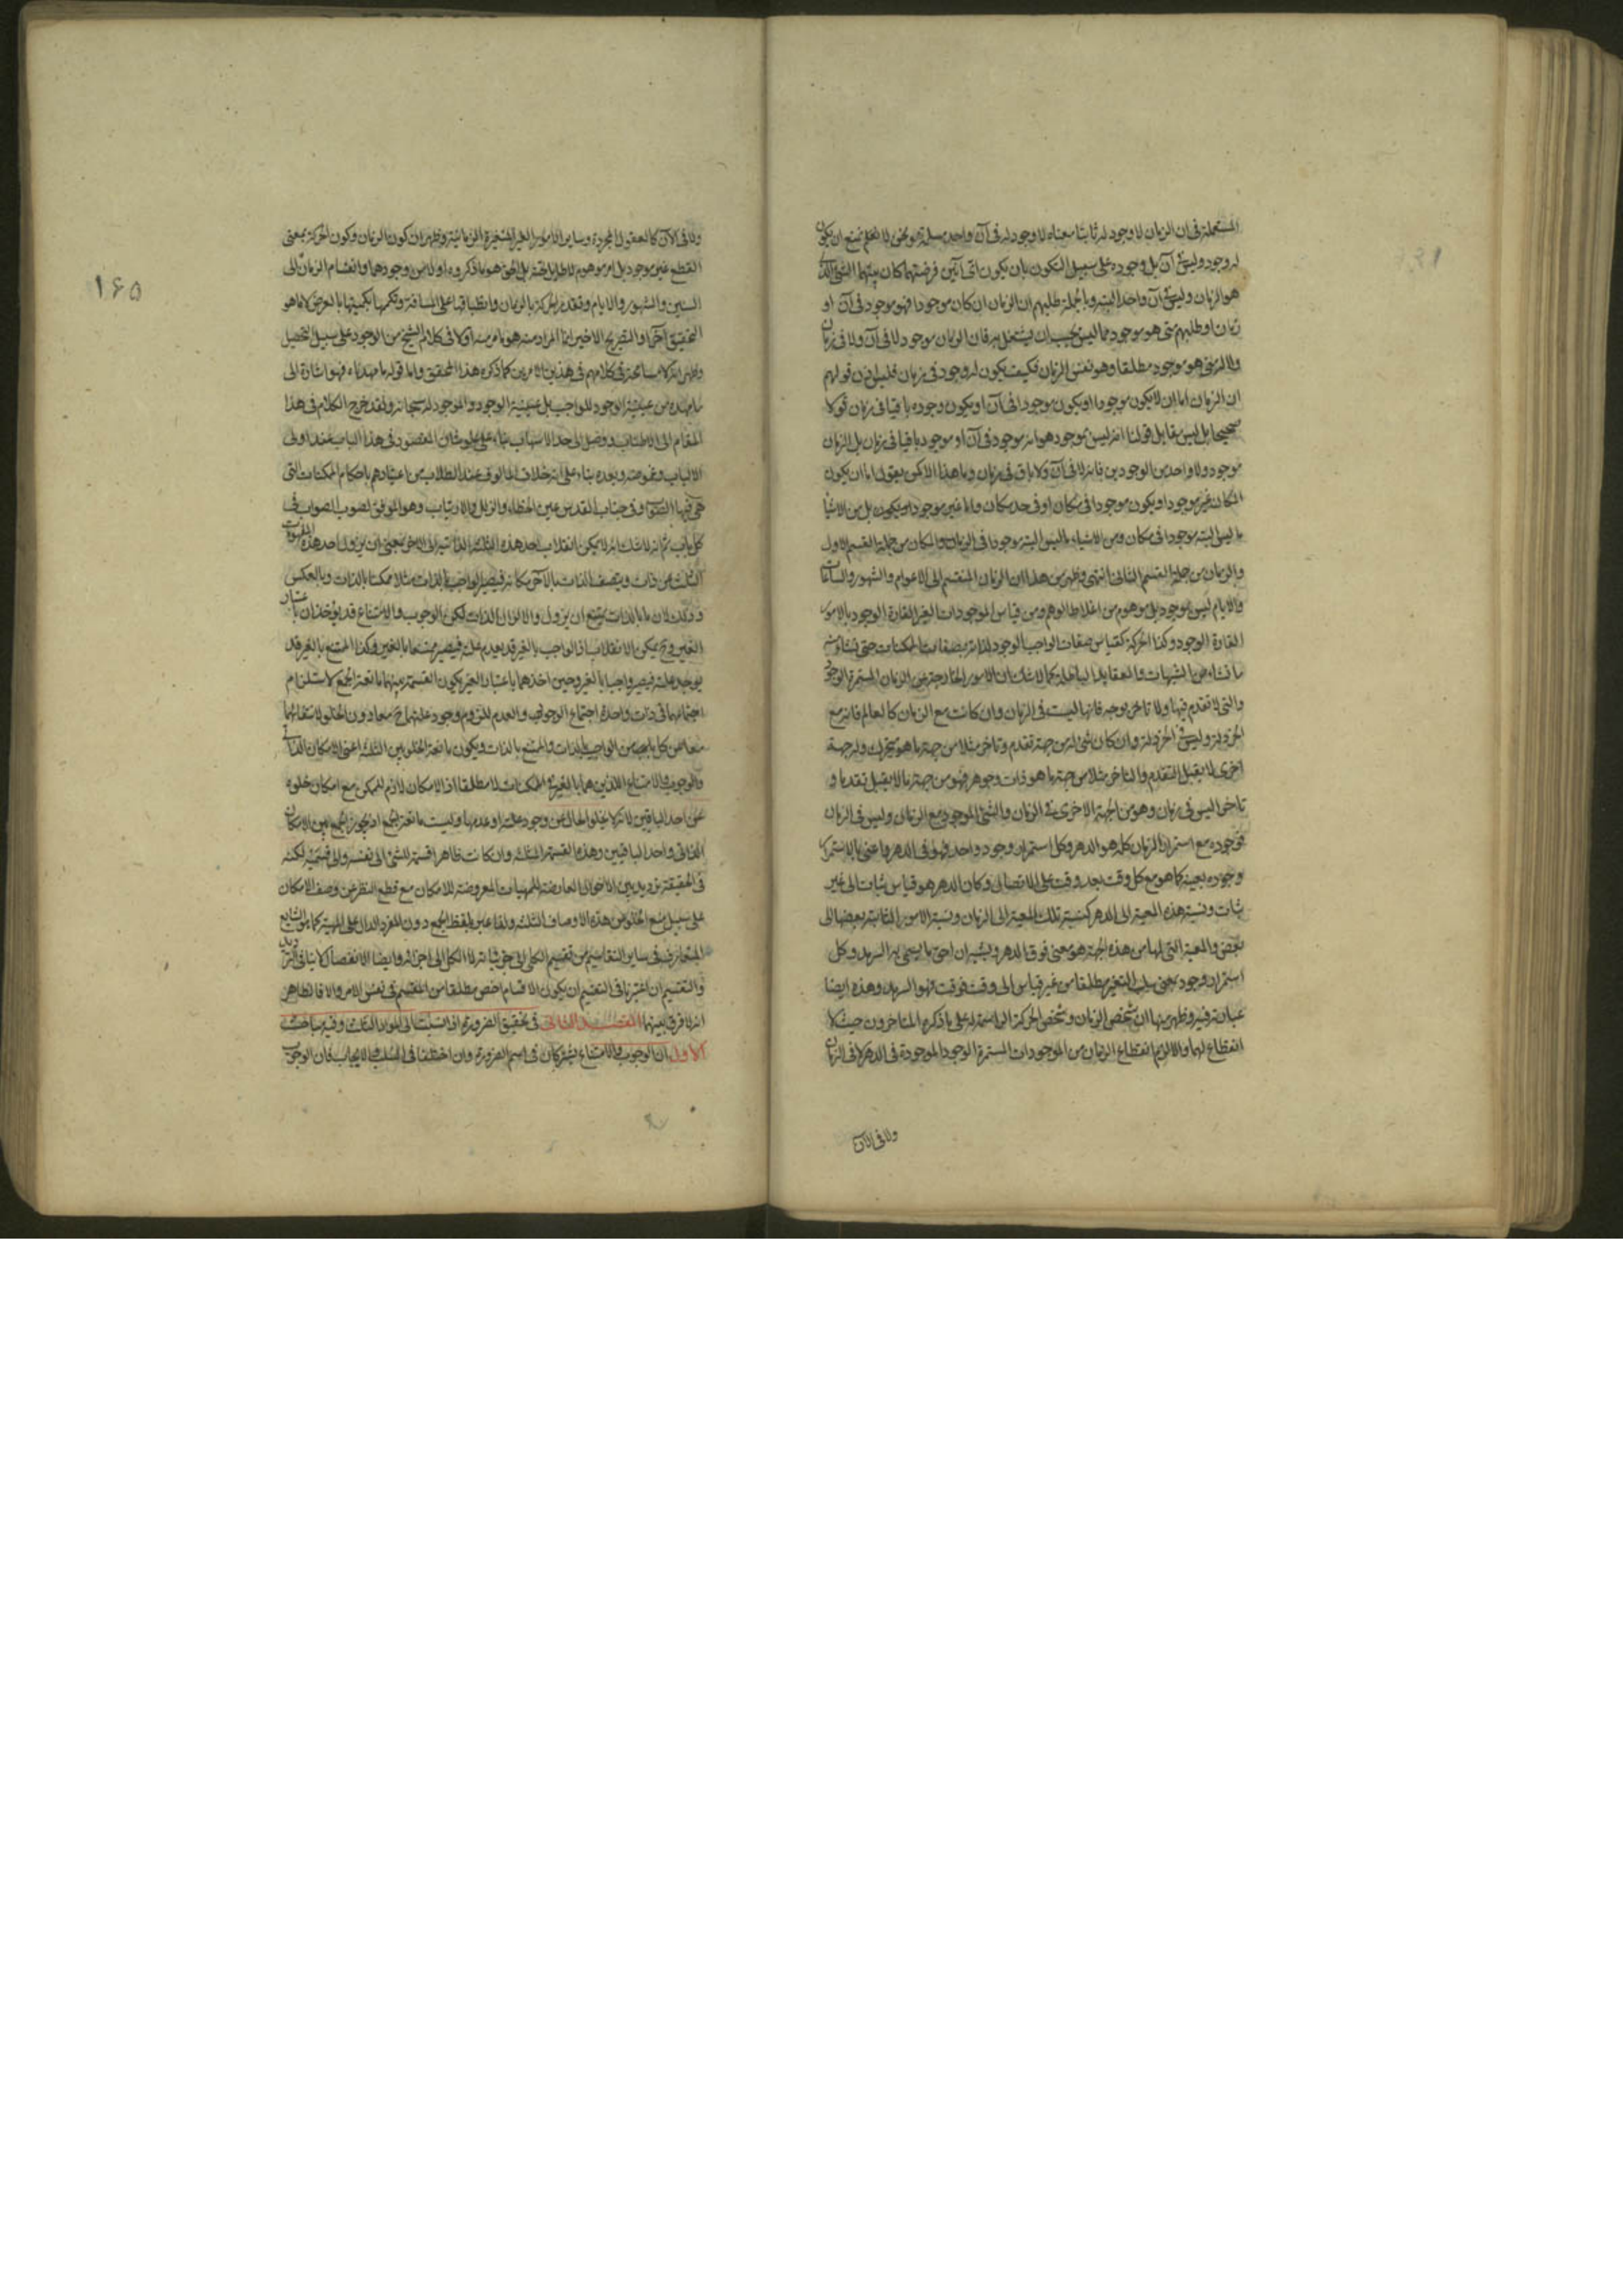 المستعملة فى ان الزمان لا وجود له ثابتا معناه لا وجود له فى آن واحد مسلمة ونحن لا نمنع ان يكون
له وجود وليس فى آن بل وجوده على سبيل التكون بان يكون اى آنين فرضتهما كان بينهما الشئ الذى
هو الزمان وليس فى آن واحد البتة وبالجملة طلبهم ان الزمان ان كان موجودا فهو موجود فى آن او
زمان او طلبهم متى هو موجود مما ليس يجب ان يشتغل به فان الزمان موجود لا فى آن ولا فى زمان
ولا له متى هو موجود مطلقا وهو نفس الزمان فكيف يكون له وجود فى زمان فليس اذن قولهم
ان الزمان اما ان لا يكون موجودا او يكون موجودا فى آن او يكون وجوده باقيا فى زمان قولا
صحيحا بل ليس مقابل قولنا انه ليس بموجود هو انه موجود فى آن او موجود باقيا فى زمان بل الزمان
موجود ولا واحد من الوجودين فانه لا فى آن ولا باق فى زمان وما هذا الا كمن يقول اما ان يكون
المكان غير موجود او يكون موجودا فى مكان او فى حد مكان واما غير موجود بل من الاشياء
ما ليس البتة موجودا فى مكان ومن الاشياء ما ليس البتة موجودا فى الزمان والمكان من جملة القسم الاول
والزمان من جملة القسم الثانى انتهى وظهر من هذا ان الزمان المنقسم الى الاعوام والشهور والساعات
والايام ليس بموجود بل موهوم من اغلاط الوهم ومن قياس الموجودات الغير القارة الوجود بالامور
القارة الوجود وكذا الحركة كقياس صفات الواجب الوجود لذاته بصفات الممكنات حتى نشاء منه
ما نشاء من الشبهات والعقايد الباطلة كما لا شك ان الامور الخارجة عن الزمان المستمرة الوجود
والتى لا تقدم فيها ولا تاخر بوجه فانها ليست فى الزمان وان كانت مع الزمان كالعالم فانه مع
الخردلة وليس فى الخردلة وان كان شئ له من جهة تقدم وتاخر مثلا من جهة ما هو متحرك وله جهة
اخرى لا يقبل التقدم والتاخر مثلا من جهة ما هو ذات وجوهر فهو من جهة ما لا يقبل تقدما و
تاخرا ليس فى زمان وهو من الجهة الاخرى فى الزمان والشئ الموجود مع الزمان وليس فى الزمان
فوجوده مع استمرار الزمان كله هو الدهر وكل استمرار وجود واحد فهو فى الدهر واعنى بالاستمرار
وجوده بعينه كما هو مع كل وقت بعد وقت على الاتصال وكان الدهر هو قياس ثبات الى غير
ثبات ونسبة هذه المعية الى الدهر كنسبة تلك المعية الى الزمان ونسبة الامور الثابتة بعضها الى
بعض والمعية التى لها من هذه الجهة هو معنى فوق الدهر ويشبه ان احق ما يسمى به السرمد وكل
استمرار وجود بمعنى سلب التغير مطلقا من غير قياس الى وقت فوقت فهو السرمد وهذه ايضا
عبارته فيه وظهر منها ان شخص الزمان وشخص الحركة الراسمة له على ما ذكره المتاخرون حيث لا
انقطاع لهما والا لزم انقطاع الزمان من الموجودات المستمرة الوجود الموجودة فى الدهر لا فى الزمان
ولا فى الآن
١۶۵
ولا فى الآن كالعقول المجردة وساير الامور الغير المتغيرة الزمانية وظهر ان كون الزمان وكون الحركة بمعنى
القطع غير موجود بل امر موهوم لا طايل تحته بل الحق هو ما ذكروه اولا من وجودهما وانقسام الزمان الى
السنين والشهور والايام وتقدير الحركة بالزمان وانطباقها على المسافة وتكممها بكميتها بالعرض كما هو
التحقيق آخرا والتصريح الاخير انما المراد منه هو ما مر منه اولا فى كلام الشيخ من الوجود على سبيل التحصيل
وظهر انه لا مسامحة فى كلامهم فى هذين الامرين كما ذكره هذا المحقق واما قوله ما مهدناه فهو اشارة الى
ما مهده من عينية الوجود للواجب بل عينية الوجود والموجود له سبحانه ولقد خرج الكلام فى هذا
المقام الى الاطناب ووصل الى حد الاسهاب بناء على علو شان المقصود فى هذا الباب عند اولى
الالباب وغموضه وبعده بناء على انه خلاف المالوف عند الطلاب من اعتيادهم باحكام الممكنات التى
هى فيها الصواب وفى جناب القدس عين الخطاء والزلل والارتياب وهو الموفق لصوب الصواب فى
كل باب ثم انه لا شك انه لا يمكن انقلاب احد هذه الثلثة الذاتية الى الاخر بمعنى ان يزول احد هذه المفهومات
الثلث عن ذات ويتصف الذات بالآخر مكانه فيصير الواجب بالذات مثلا ممكنا بالذات وبالعكس
وذلك لان ما بالذات يمتنع ان يزول والا لزال الذات لكن الوجوب والامتناع قد يؤخذان باعتبار
الغير وح يمكن الانقلاب اذ الواجب بالغير قد يعدم علته فيصير ممتنعا بالغير وكذا الممتنع بالغير قد
يوجد علته فيصير واجبا بالغير وحين اخذهما باعتبار الغير يكون القسمة بينهما مانعة الجمع لاستلزام
اجتماعهما فى ذات واحدة اجتماع الوجود والعدم للزوم وجود علتهما ح معا دون الخلو لانتفائهما
معا عن كل ما يجب من الواجب بالذات والممتنع بالذات ويكون مانعة الخلو بين الثلثة اعنى الامكان الذاتى
والوجوب والامتناع اللذين هما بالغير فى الممكنات لا مطلقا اذ الامكان لازم للممكن مع امكان خلوه
عن احد الباقيين لانه لا يخلو الحال عن وجود علته او عدمها وليست مانعة الجمع اذ يجوز الجمع بين الامكان
الذاتى واحد الباقيين وهذه القسمة المثلثة وان كانت ظاهرا قسمة للشئ الى نفسه والى قسميه لكنه
فى الحقيقة ترديد بين الاحوال العارضة للمهيات المعروضة للامكان مع قطع النظر عن وصف الامكان
على سبيل منع الخلو من هذه الاوصاف الثلثة ولذا عبر بلفظ الجمع دون المفرد الدال على المهية كما هو الشايع
المتعارف فى ساير التقاسيم من تقسيم الكلى الى جزئياته لا الكل الى اجزائه وايضا الانفصال لا ينافى الترديد
والتقسيم ان اعتبرنا فى التقسيم ان يكون الاقسام اخص مطلقا من المقسم فى نفس الامر والا فالظاهر
انه لا فرق بينهما المقصد الثانى فى تحقيق الضرورة اذا نسبت الى المواد الثلث وفيه مباحث
الاول ان الوجوب والامتناع يشتركان فى اسم الضرورة وان اختلفا فى السلب والايجاب فان الوجوب